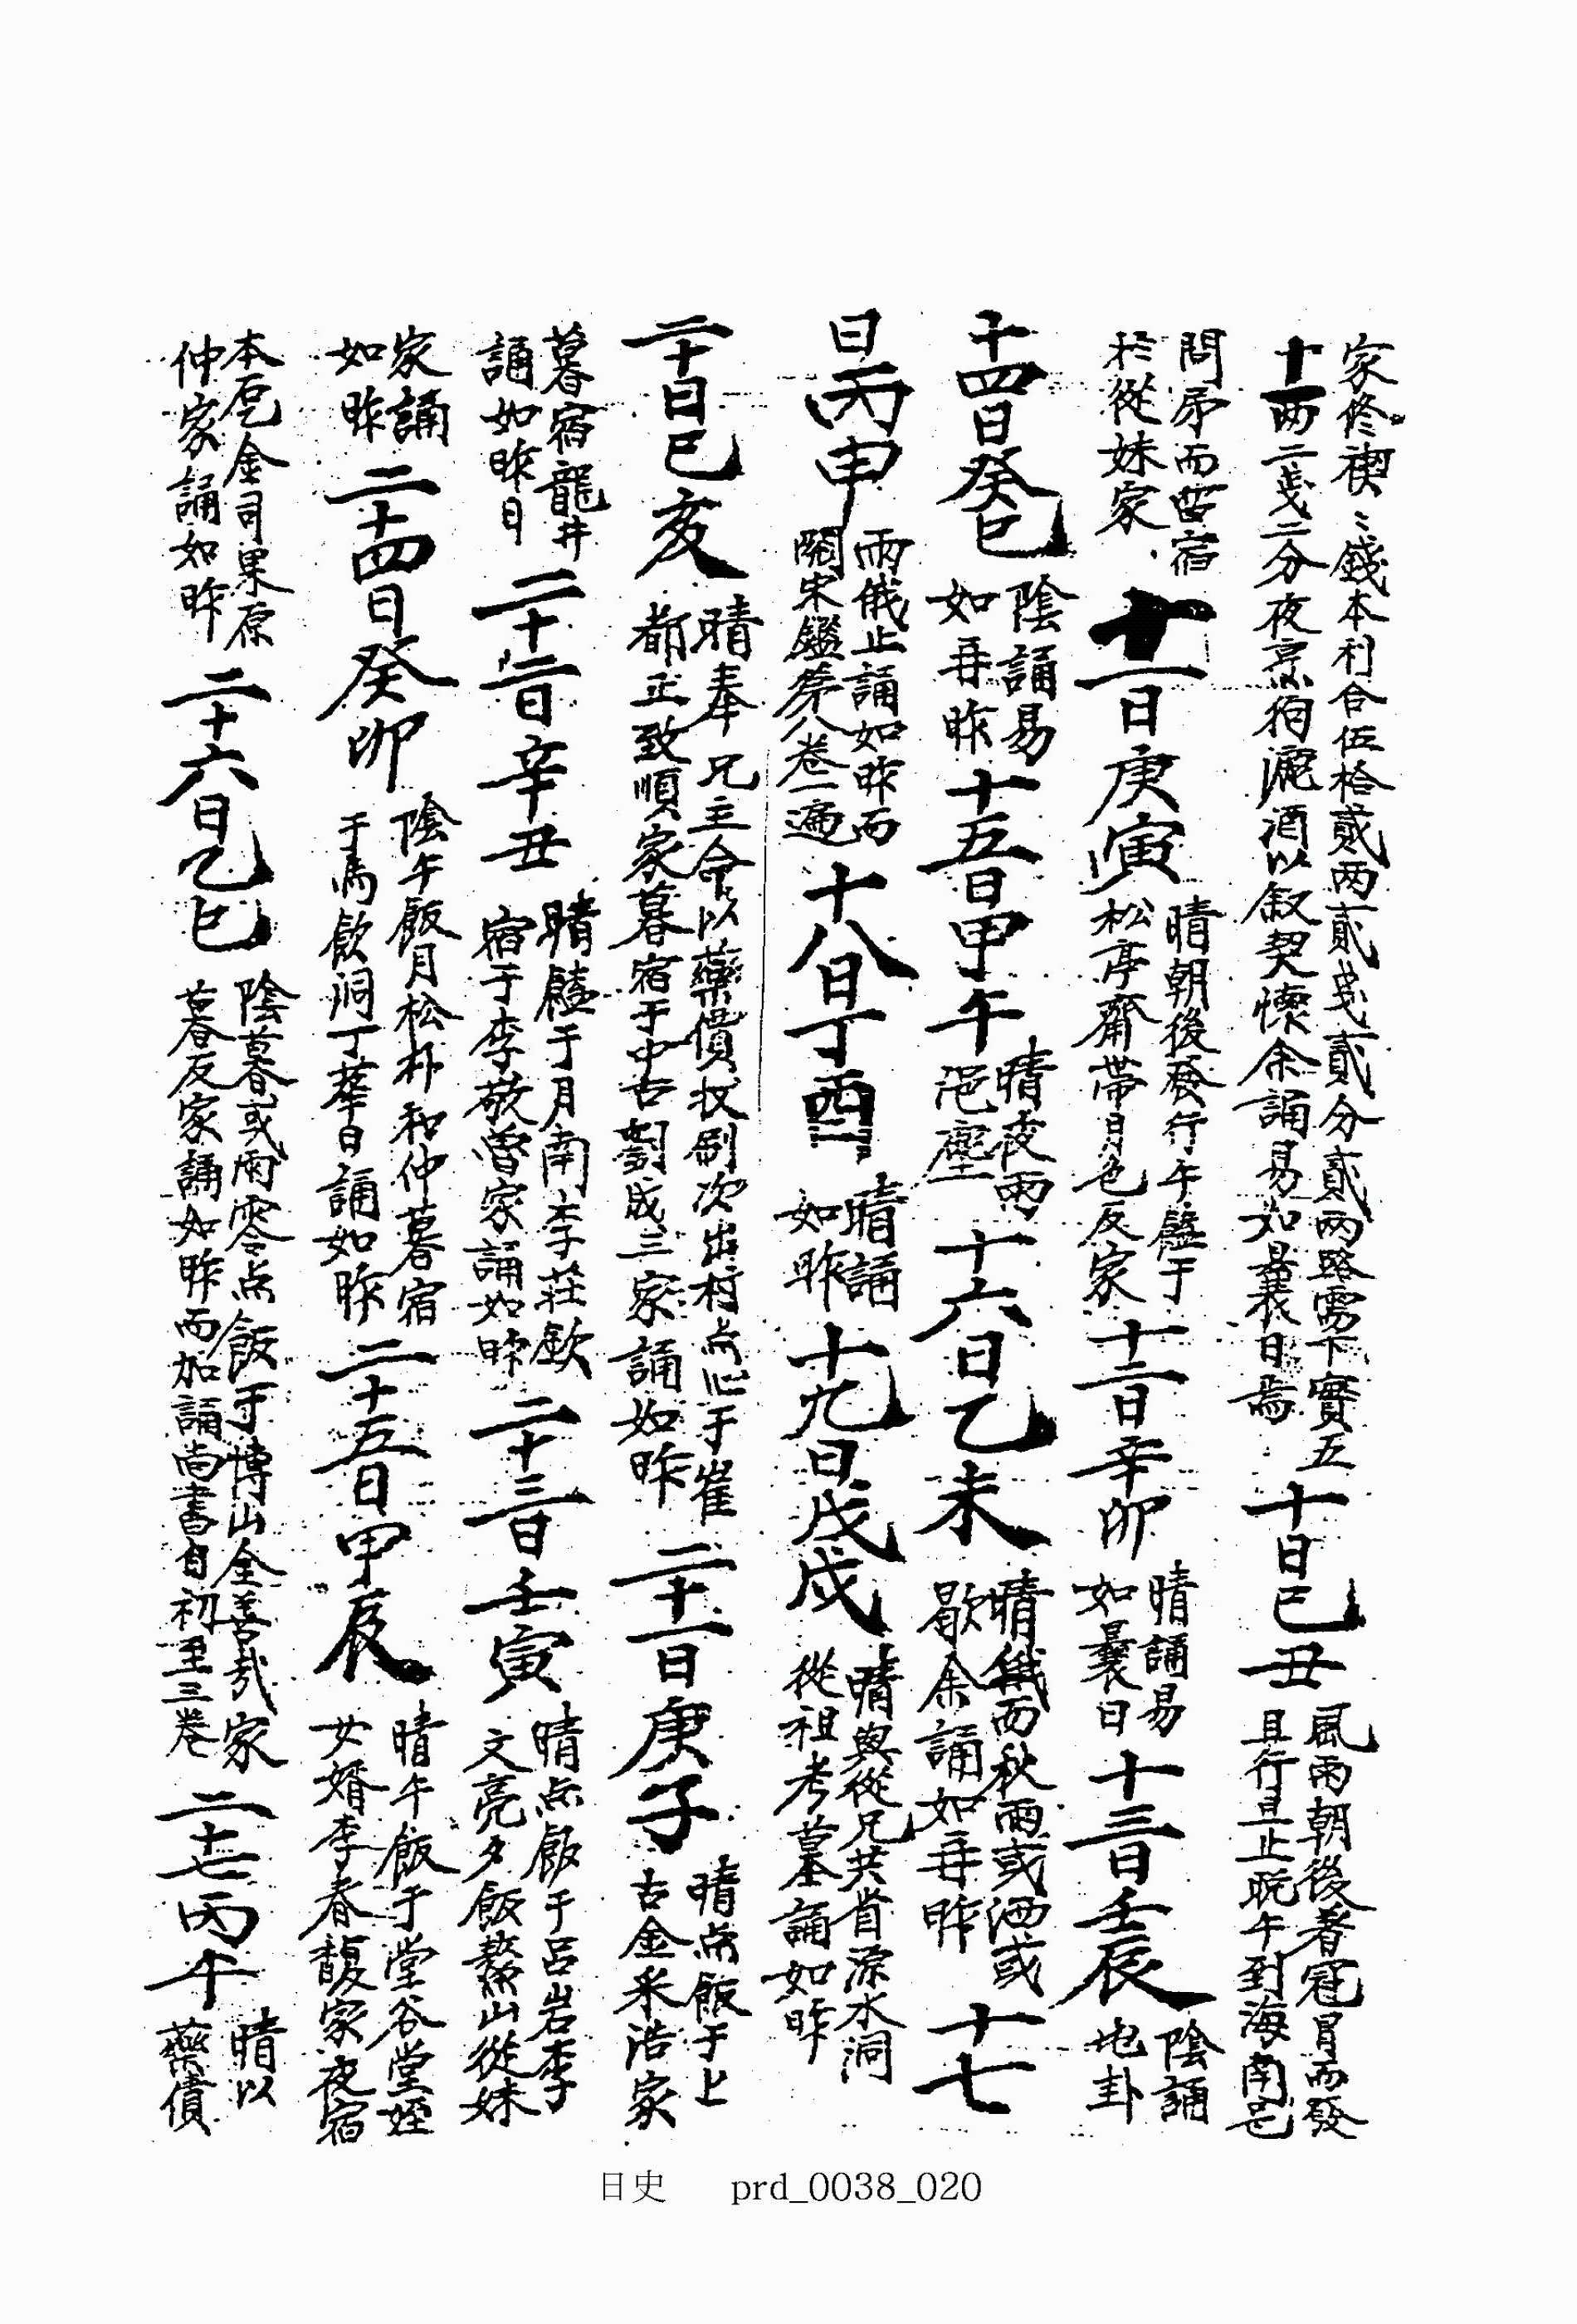 家修禊〻錢本利合伍拾貳两貳戔貳分貳两路需下實五
十一两二戔二分夜烹狗漉酒以叙契懷余誦易如曩日焉
十日己丑
風雨朝後著冠冒而發
且行且止晩午到海南邑
問房而留宿
於從妹家
十一日庚寅
晴朝後發行午饁于
松亭齋帶月色反家
十二日辛卯
晴誦易
如曩日
十三日壬辰
陰誦
地卦
十四日癸巳
陰誦易
如再昨
十五日甲午
晴夜雨
浥塵
十六日乙未
晴俄而秋雨或洒或
歇余誦如再昨
十七
日丙申
雨俄止誦如昨而
閱宋鑑第八卷一遍
十八日丁酉
晴誦
如昨
十九日戊戌
晴與從兄共省源水洞
從祖考墓誦如昨
二十日己亥
晴奉兄主命以藥債收刷次出村点心于崔
都正致順家暮宿于中古劉成三家誦如昨
二十一日庚子
晴点飯于上
古金釆浩家
暮宿龍井
誦如昨日
二十二日辛丑
晴饁于月南李莊欽
宿于李敬曾家誦如昨
二十三日壬寅
晴点飯于呂岩李
文亮夕飯鰲山從妹
家誦
如昨
二十四日癸卯
陰午飯月松朴和仲暮宿
于馬飮洞丁華日誦如昨
二十五日甲辰
晴午飯于堂谷堂姪
女婿李春馥家夜宿
本邑金司果原
仲家誦如昨
二十六日乙巳
陰暮或雨零点飯于博山金善哉家
暮反家誦如昨而加誦尚書自初至三卷
二十七丙午
晴以
藥債
日史 prd_0038_020